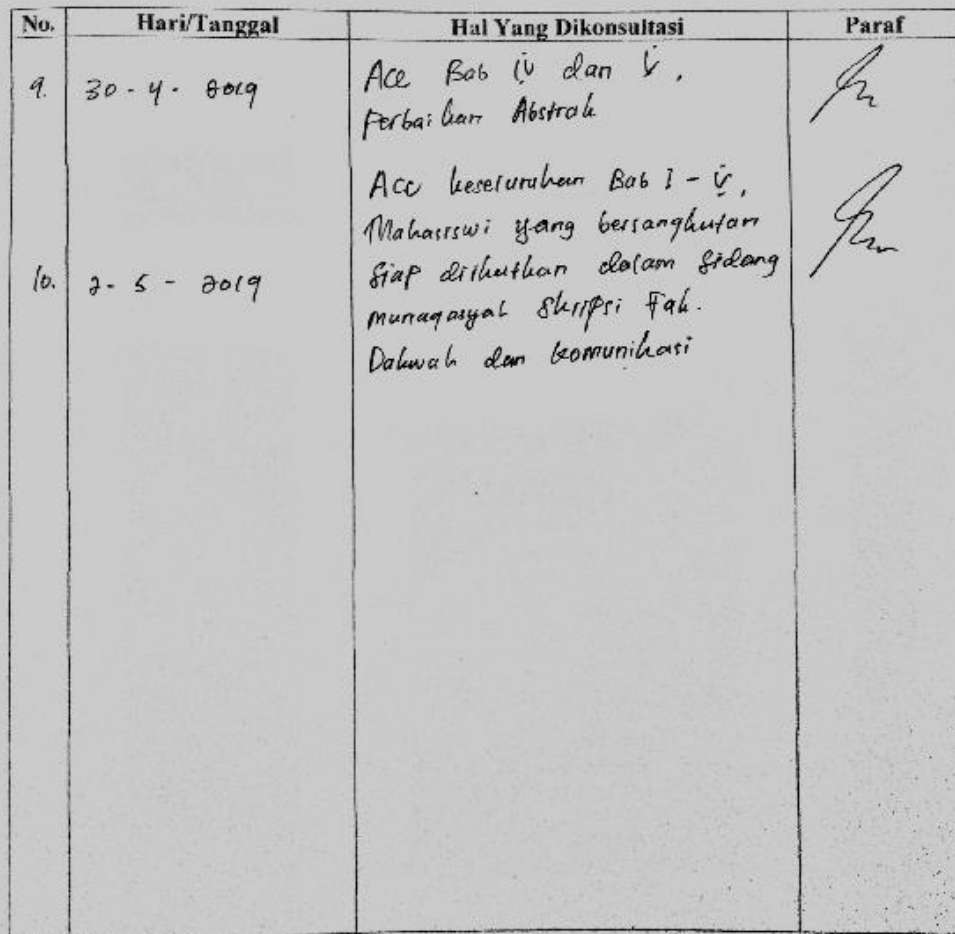 No. Hari/Tanggal Hal Yang Dikonsultasi Paraf
9. 30 - 4 - 2019 Acc Bab IV dan V,
Perbaikan Abstrak
Acc keseluruhan Bab I - V,
Mahasiswi yang bersangkutan
10. 2 - 5 - 2019 Siap diikutkan dalam Sidang
munaqasyah Skripsi Fak.
Dakwah dan Komunikasi